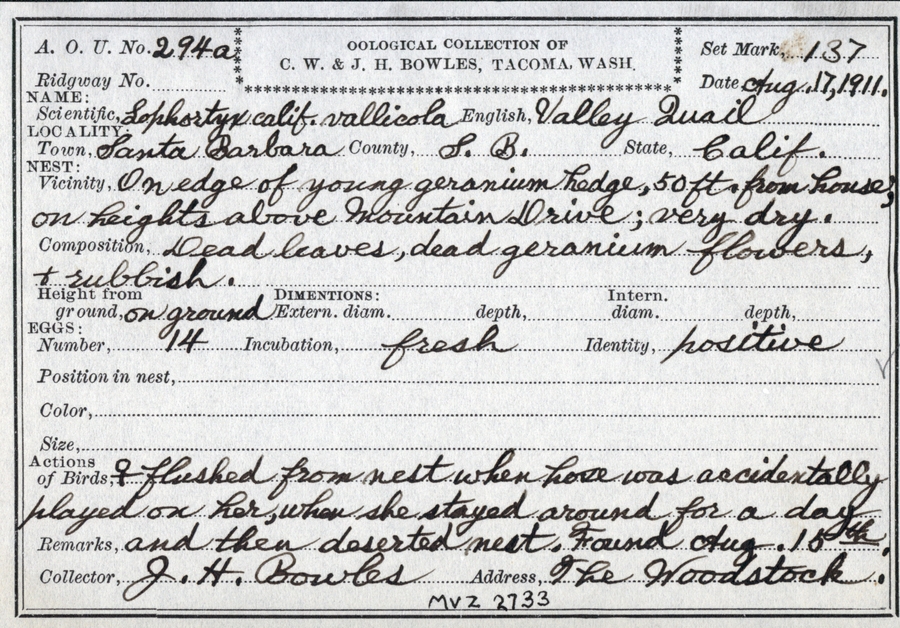 A. O. U. No. 294a
OOLOGICAL COLLECTION OF
C. W. & J. H. BOWLES, TACOMA, WASH.
Set Mark, 137
Ridgway No.
Date, Aug. 17, 1911.
NAME:
Scientific, Lophortyx calif. vallicola English, Valley Quail
LOCALITY:
Town, Santa Barbara County, S. B. State, Calif.
NEST:
Vicinity, On edge of young geranium hedge, 50 ft. from house;
on heights above Mountain Drive; very dry.
Composition, Dead leaves, dead geranium flowers,
+ rubbish.
Height from ground, on ground DIMENTIONS: Extern. diam. depth, Intern. diam. depth,
EGGS:
Number, 14 Incubation, fresh Identity, positive
Position in nest,
Color,
Size,
Actions of Birds, ♀ flushed from nest when hose was accidentally
played on her, when she stayed around for a day
Remarks, and then deserted nest. Found Aug. 15th.
Collector, J. H. Bowles Address, The Woodstock.
MVZ 2733